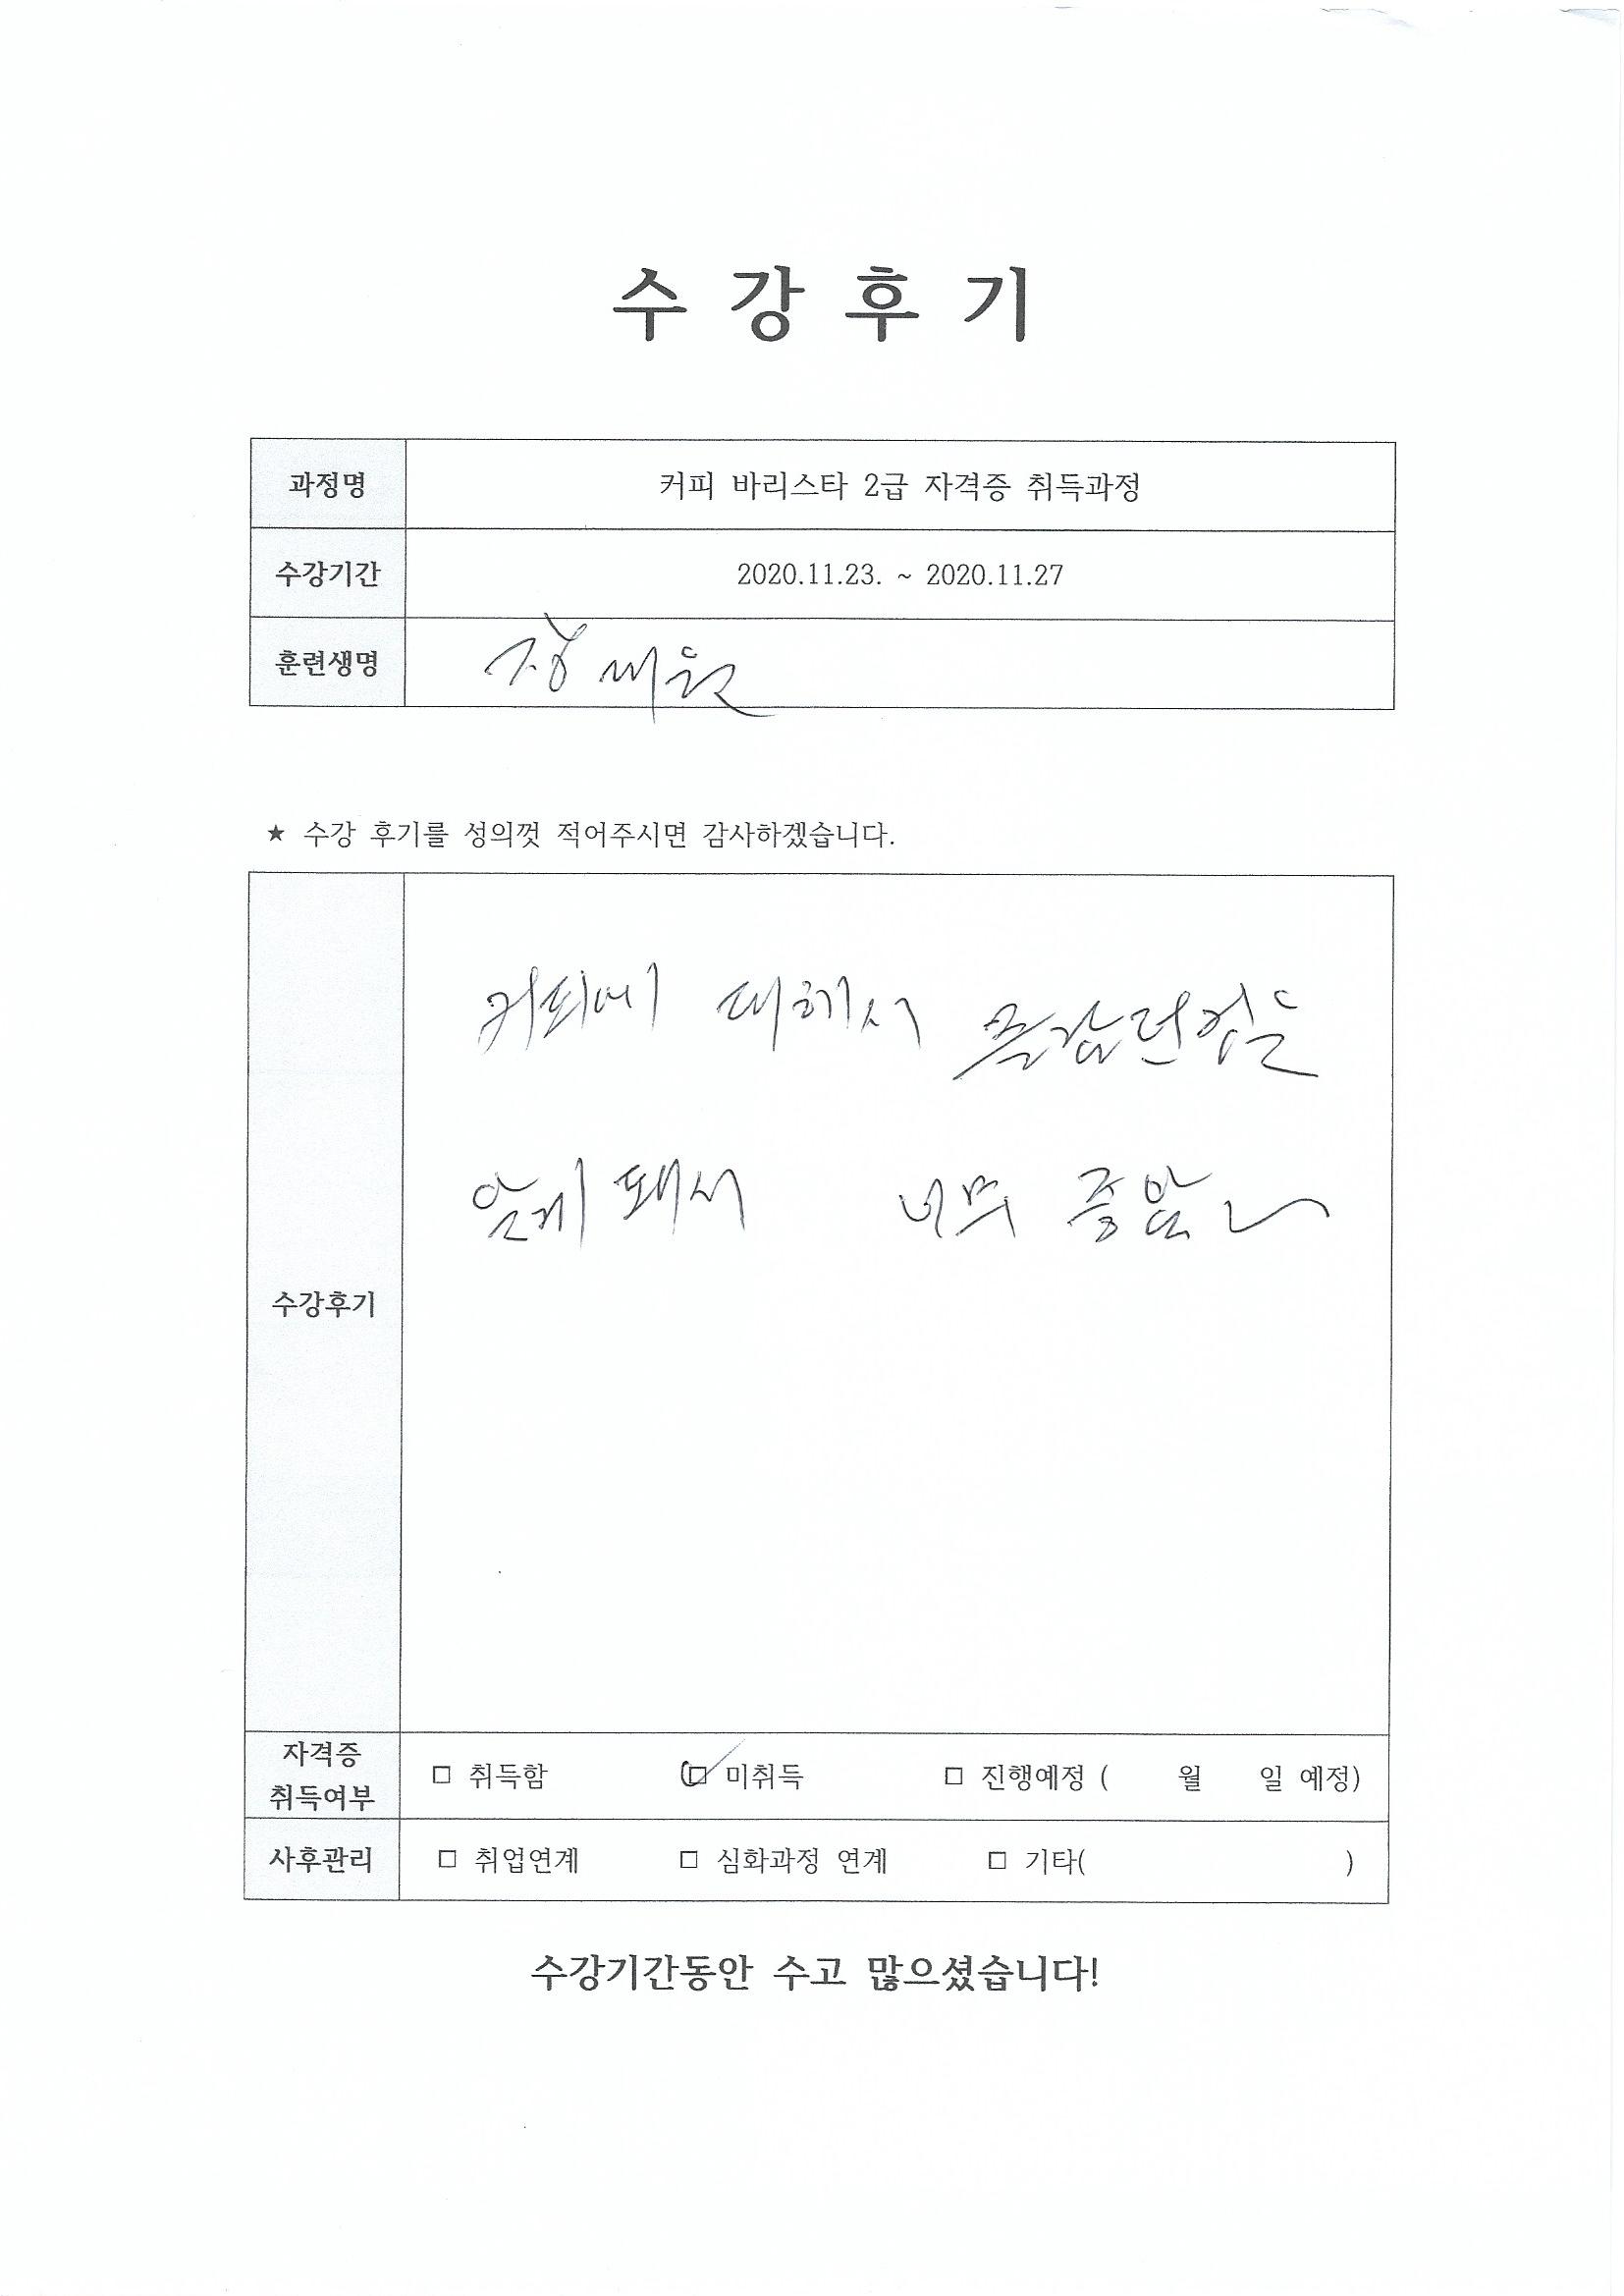 수 강 후 기
과정명 커피 바리스타 2급 자격증 취득과정
수강기간 2020.11.23. ~ 2020.11.27
훈련생명
★ 수강 후기를 성의껏 적어주시면 감사하겠습니다.
커피에 대해서
알게 돼서 너무
수강후기
자격증
취득여부 □ 취득함 ☑ 미취득 □ 진행예정 ( 월 일 예정)
사후관리 □ 취업연계 □ 심화과정 연계 □ 기타( )
수강기간동안 수고 많으셨습니다!